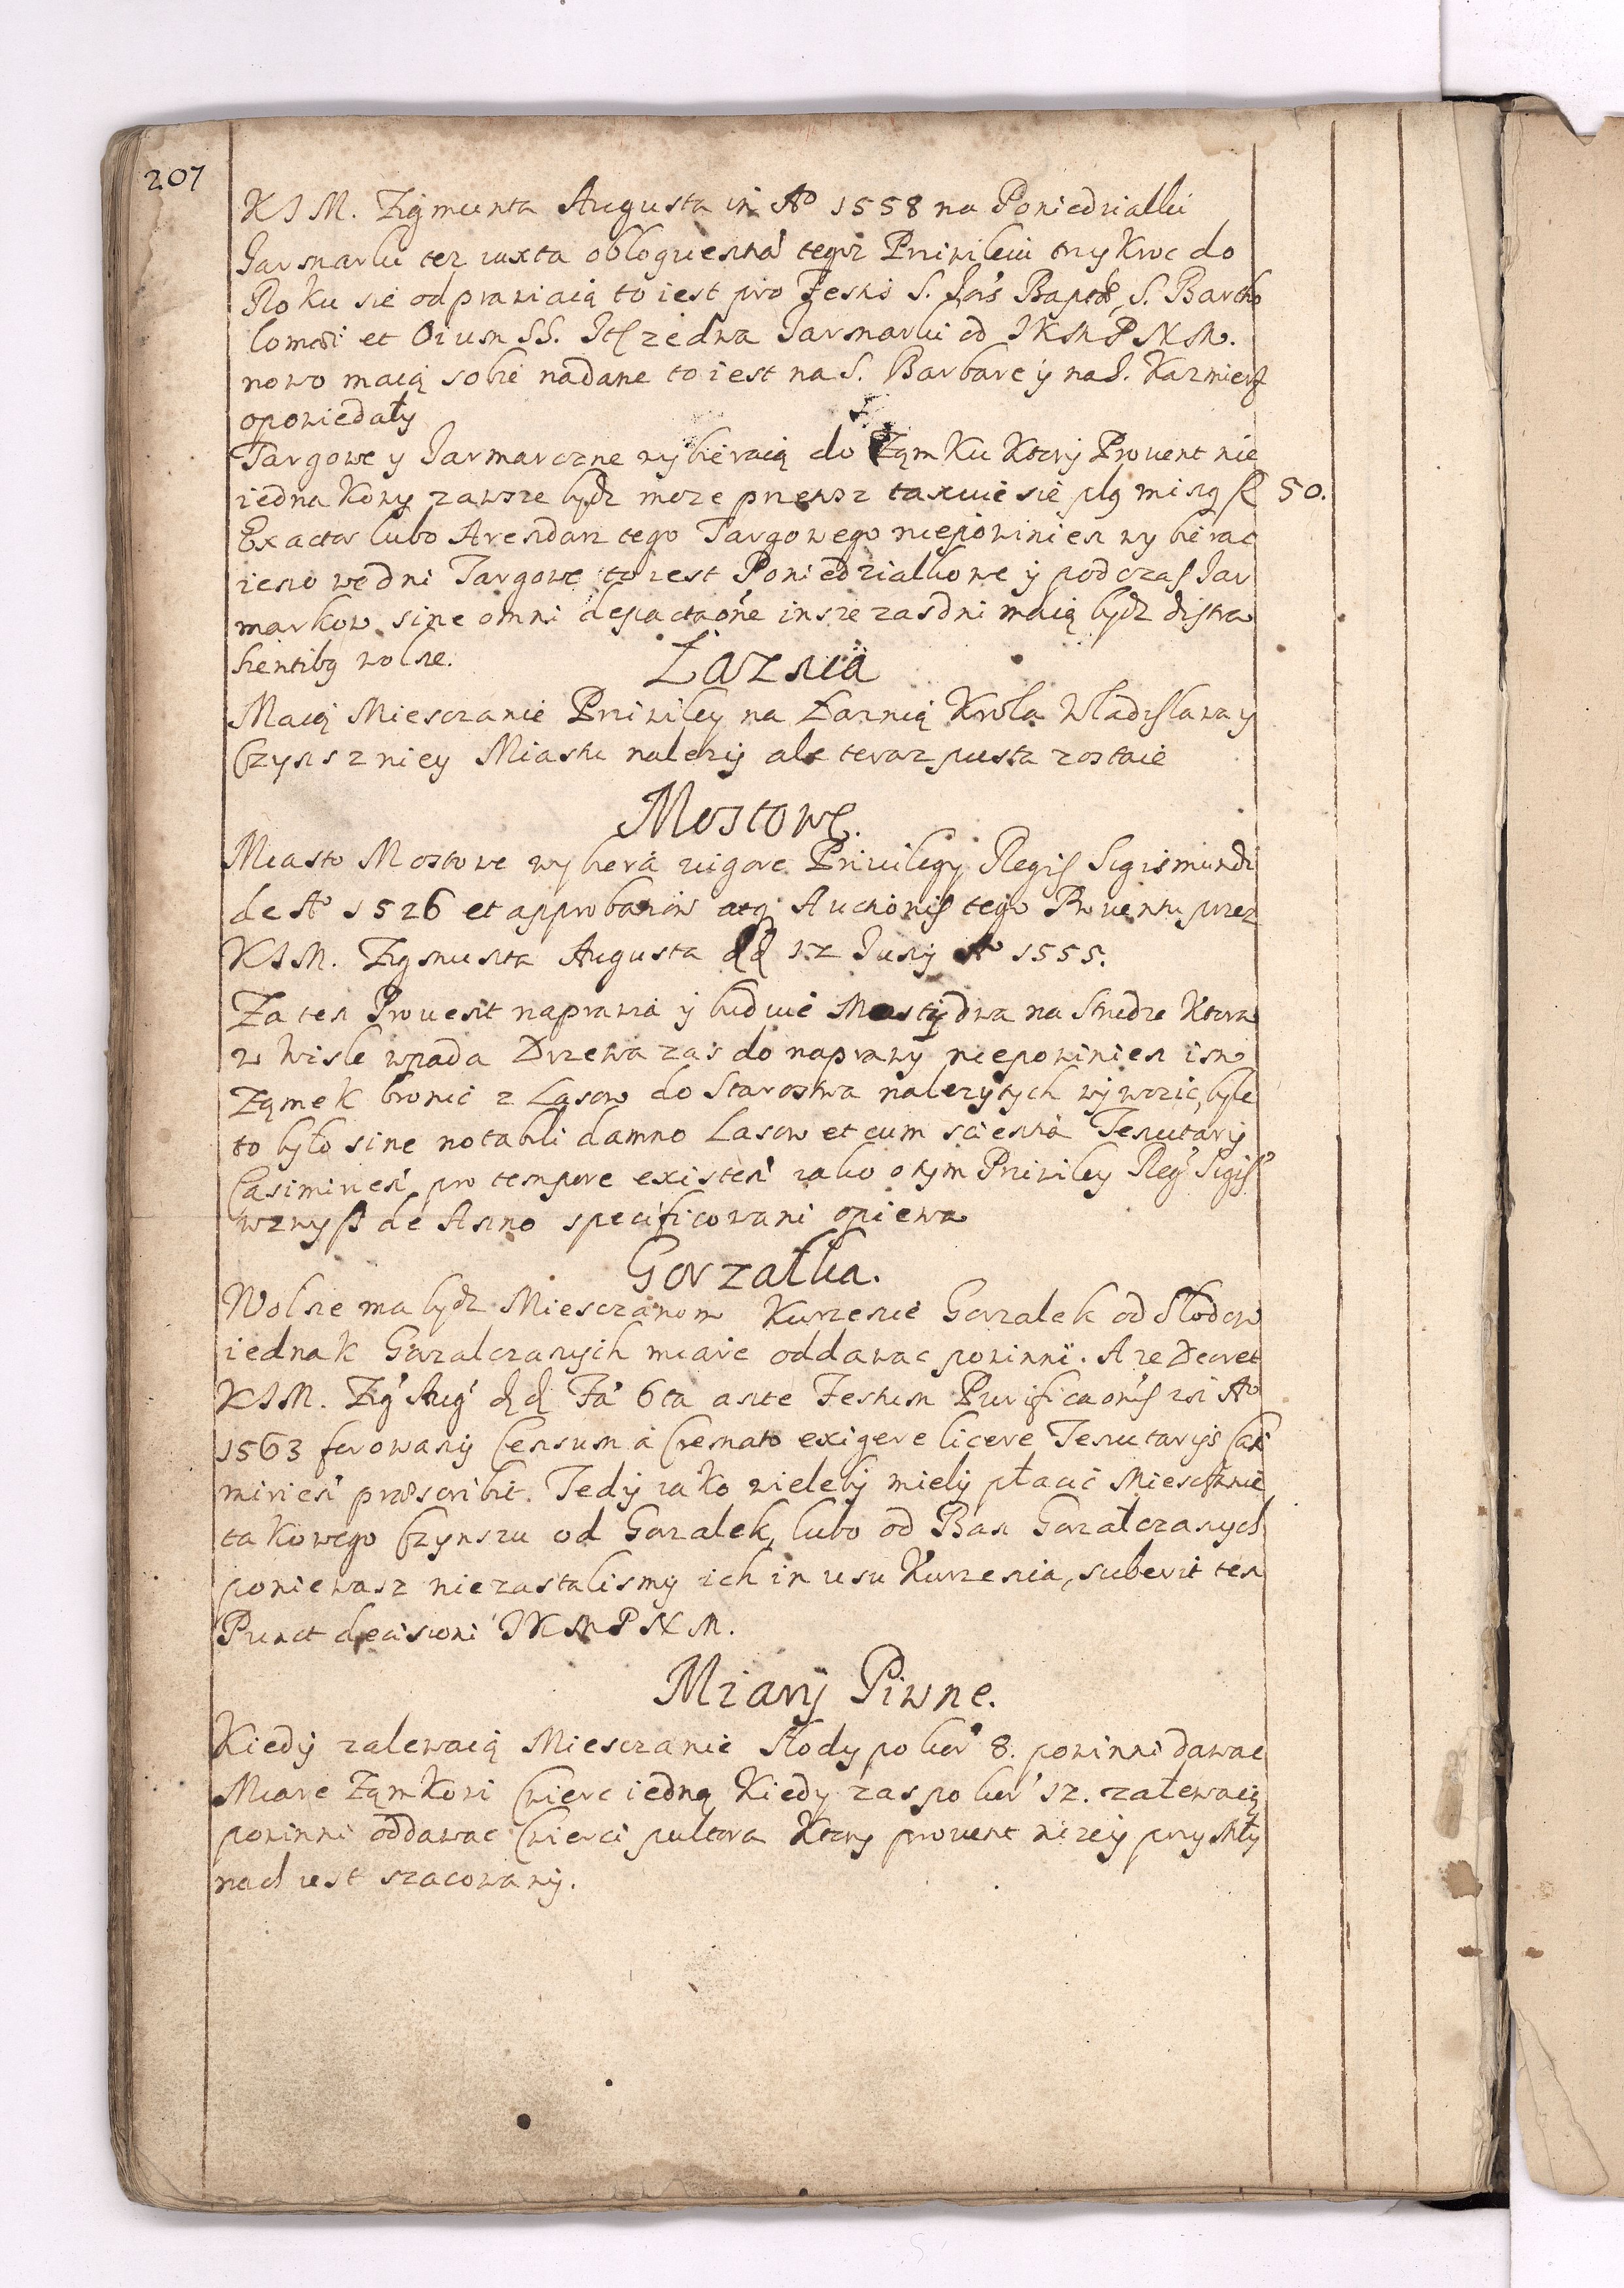 207
KJM. Zigmunta Augusta in Aº 1558 na Poniedzialki
Jarmarki tez iuxta obloquentiá tegoz Priwileiu trzykroc do
Roku sie odprawiaią to iest pro Festis S. Joís Baptæ, S. Bartho
lomæi et Oium SS. Itẽ ze dwa Jarmarki od JKMPNM.
nowo maią sobie nadane to iest na S. Barbare ÿ na S. Kazmierz
opowiedaly
Targowe y Jarmarczne wybieraią do Ząmku Ktorÿ Prouent nie
iednakowÿ zawsze bydz moze przetosz taxuie sie plg minq fl 50.
Exactor lubo Arendarz tego Targowego niepowinien wybierac
ieno we dni Targowe to iest Poniedzialkowe ÿ podczas Jar
markow sine omni depactaóne insze zas dni maią bydz distra
hentibq wolne.
Łaznia
Maią Miesczanie Priwiley na Łaznią Krola Wladislawa y
Czynsz z niey Miastu nalezÿ ale teraz pusta zostaie
Mostowe.
Miasto Mostowe wybiera uigore Priuilegÿ Regis Sigismundi
de Aº 1526 et approbaóis atq Auctionis tego Prouentu przez
KJM. Zigmunta Augusta dd 12 Junÿ Aº 1555.
Za ten Prouent naprawia ÿ buduie Mostÿ dwa na Strudze Ktora
w Wisle wpada Drzewa zas do naprawÿ niepowinien im
Ząmek bronic z Lasow do Starostwa nalezytych wÿwozic, byle
to bylo sine notabili damno Lasow et cum scientia Tenutarÿ
Casimirień pro tempore existeń iako o tym Priwiley Reg Sigis
wzwysz de Anno specificowani opiewa
Gorzalka.
Wolne ma bydz Miesczanom Kurzenie Gorzalek od Slodow
iednak Gorzalczanych miare oddawac powinni. A ze Decret
KJM. Zig Aug dd Fa 6ta ante Festum Purificaonis in Aº
1563 ferowanÿ Censum a Cremato exigere licere Tenutarÿs Casi
mirień præscribit. Tedÿ iako wielebÿ mielÿ płacic Miesczanie
takowego Czynszu od Gorzalek, lubo od Ban Gorzałczanych
poniewasz niezastalismÿ ich in usu Kurzenia, suberit ten
Punct decisioni JKMPNM.
Miarÿ Piwne.
Kiedÿ zalewaią Miesczanie Słody po kor 8. powinni dawac
Miare Ząmkowi Cwierc iedną Kiedy zas po kor 12. załewaią
powinni oddawac Cwierci pultora Ktory prouent nizeÿ przy Mły
nach iest szacowanÿ.